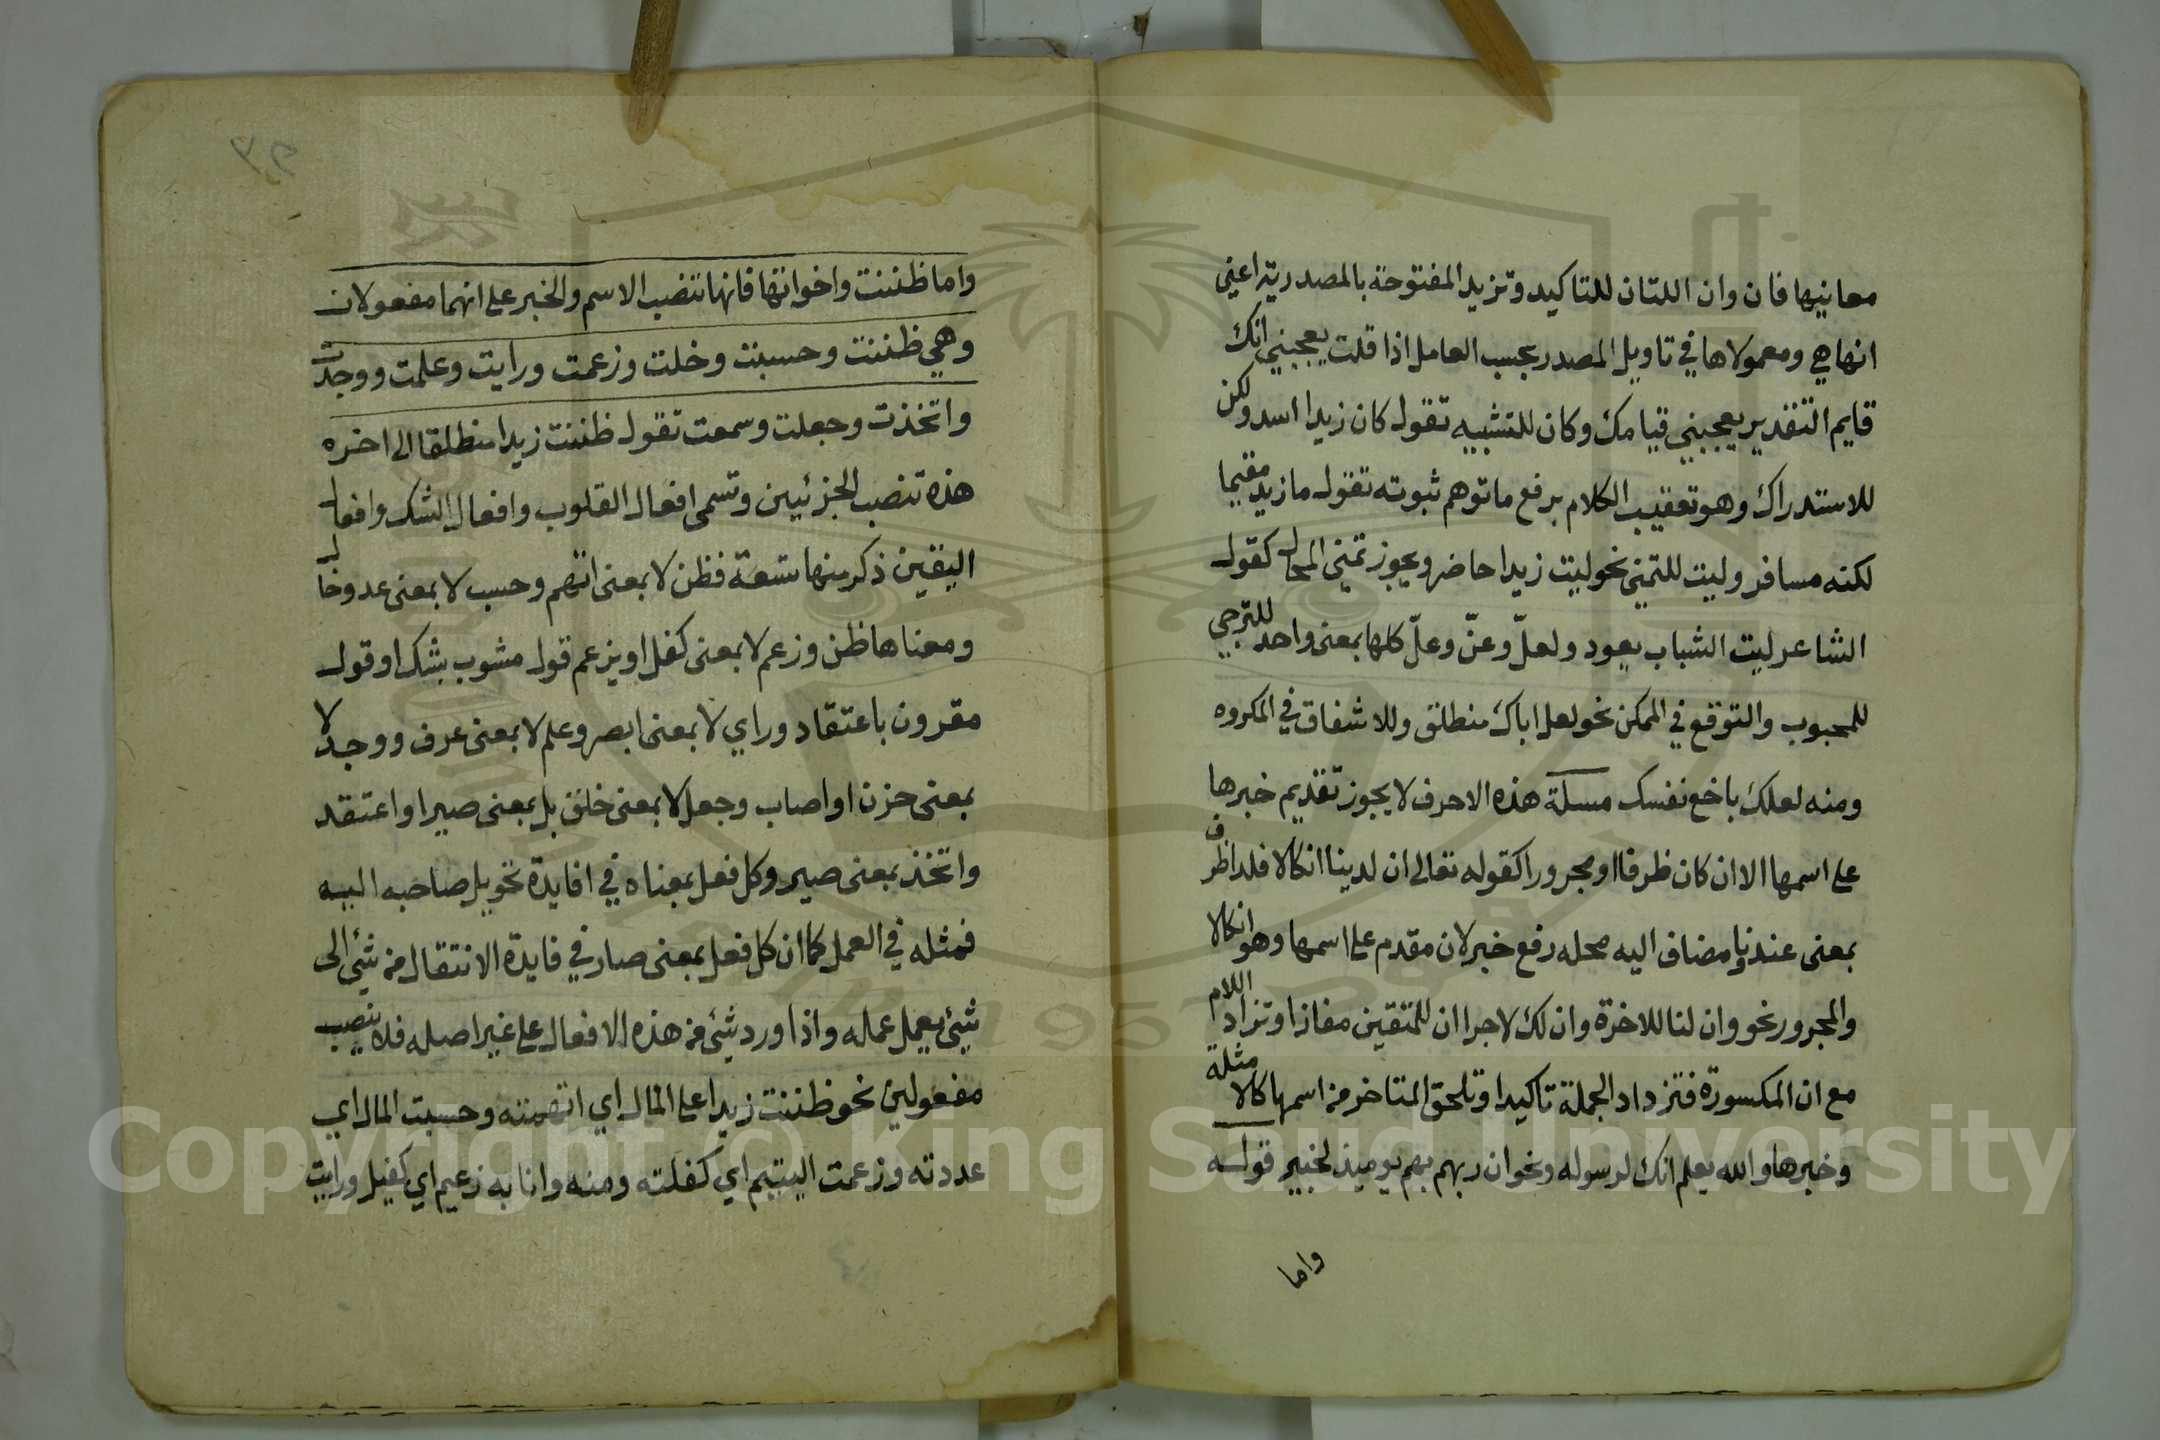 معانيها فان وان اللتان للتاكيد وتزيد المفتوحة بالمصدرية اعني
انها هي ومعمولاها في تاويل المصدر بحسب العامل اذا قلت يعجبني انك
قايم التقدير يعجبني قيامك وكان للتشبيه تقول كان زيدا اسد ولكن
للاستدراك وهو تعقيب الكلام برفع ماتوهم ثبوته تقول ما زيد مقيما
لكنه مسافر وليت للتمني نحو ليت زيدا حاضر ويجوز تمني المحال كقول
الشاعر ليت الشباب يعود ولعلّ وعنّ وعلّ كلها بمعنى واحد للترجي
للمحبوب والتوقع في الممكن نحو لعل اباك منطلق وللاشفاق في المكروه
ومنه لعلك باخع نفسك مسئلة هذه الاحرف لا يجوز تقديم خبرها
على اسمها الا ان كان ظرفا او مجرورا كقوله تعالى ان لدينا انكالا فلدا ظرف
بمعنى عند ونا مضاف اليه محله رفع خبر لان مقدم على اسمها وهو انكالا
والمجرور نحو وان لنا للاخرة وان لك لاجرا ان للمتقين مفازا وتزاد اللام
مع ان المكسورة فتزداد الجملة تاكيدا وتلحق المتاخر من اسمها كالامثلة
وخبرها والله يعلم انك لرسوله ونحو ان ربهم بهم يوميذ لخبير قوله
واما
٣٢
واما ظننت واخواتها فانها تنصب الاسم والخبر على انهما مفعولان
وهي ظننت وحسبت وخلت وزعمت ورايت وعلمت ووجدت
واتخذت وجعلت وسمعت تقول ظننت زيدا منطلقا الى اخره
هذه تنصب الجزئيين وتسمى افعال القلوب وافعال الشك وافعال
اليقين ذكر منها تسعة فظن لا بمعنى اتهم وحسب لا بمعنى عد وخال
ومعناها ظن وزعم لا بمعنى كفل او يزعم قول مشوب بشك او قول
مقرون باعتقاد وراي لا بمعنى ابصر وعلم لا بمعنى عرف ووجد لا
بمعنى حزن او اصاب وجعل لا بمعنى خلق بل بمعنى صير او اعتقد
واتخذ بمعنى صير وكل فعل بمعناه في افايدة تحويل صاحبه اليه
فمثله في العمل كما ان كل فعل بمعنى صار في فايدة الانتقال من شئ الى
شئ يعمل عمله واذا ورد شئ من هذه الافعال على غير اصله فلا ينصب
مفعولين نحو ظننت زيدا على المال اي اتهمته وحسبت المال اي
عددته وزعمت اليتيم اي كفلته ومنه وانا به زعيم اي كفيل ورايت
Copyright © King Saud University